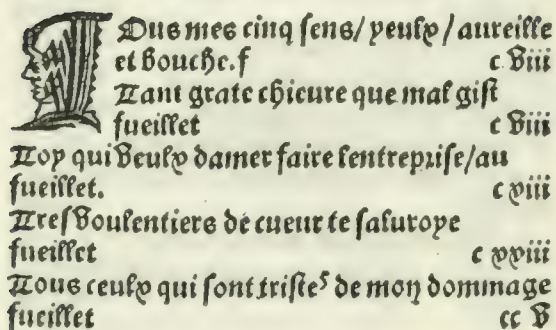 TOus mes cinq sens/ yeulx / aureille
et bouche.f c viii
Tant grate chieure que mal gist
fueillet c viii
Toy qui veulx damer faire lentreprise/au
fueillet. c xiii
Tres voulentiers de cueur te saluroye
fueillet c xxiii
Tous ceulx qui sont tristes de mon dommage
fueillet cc v